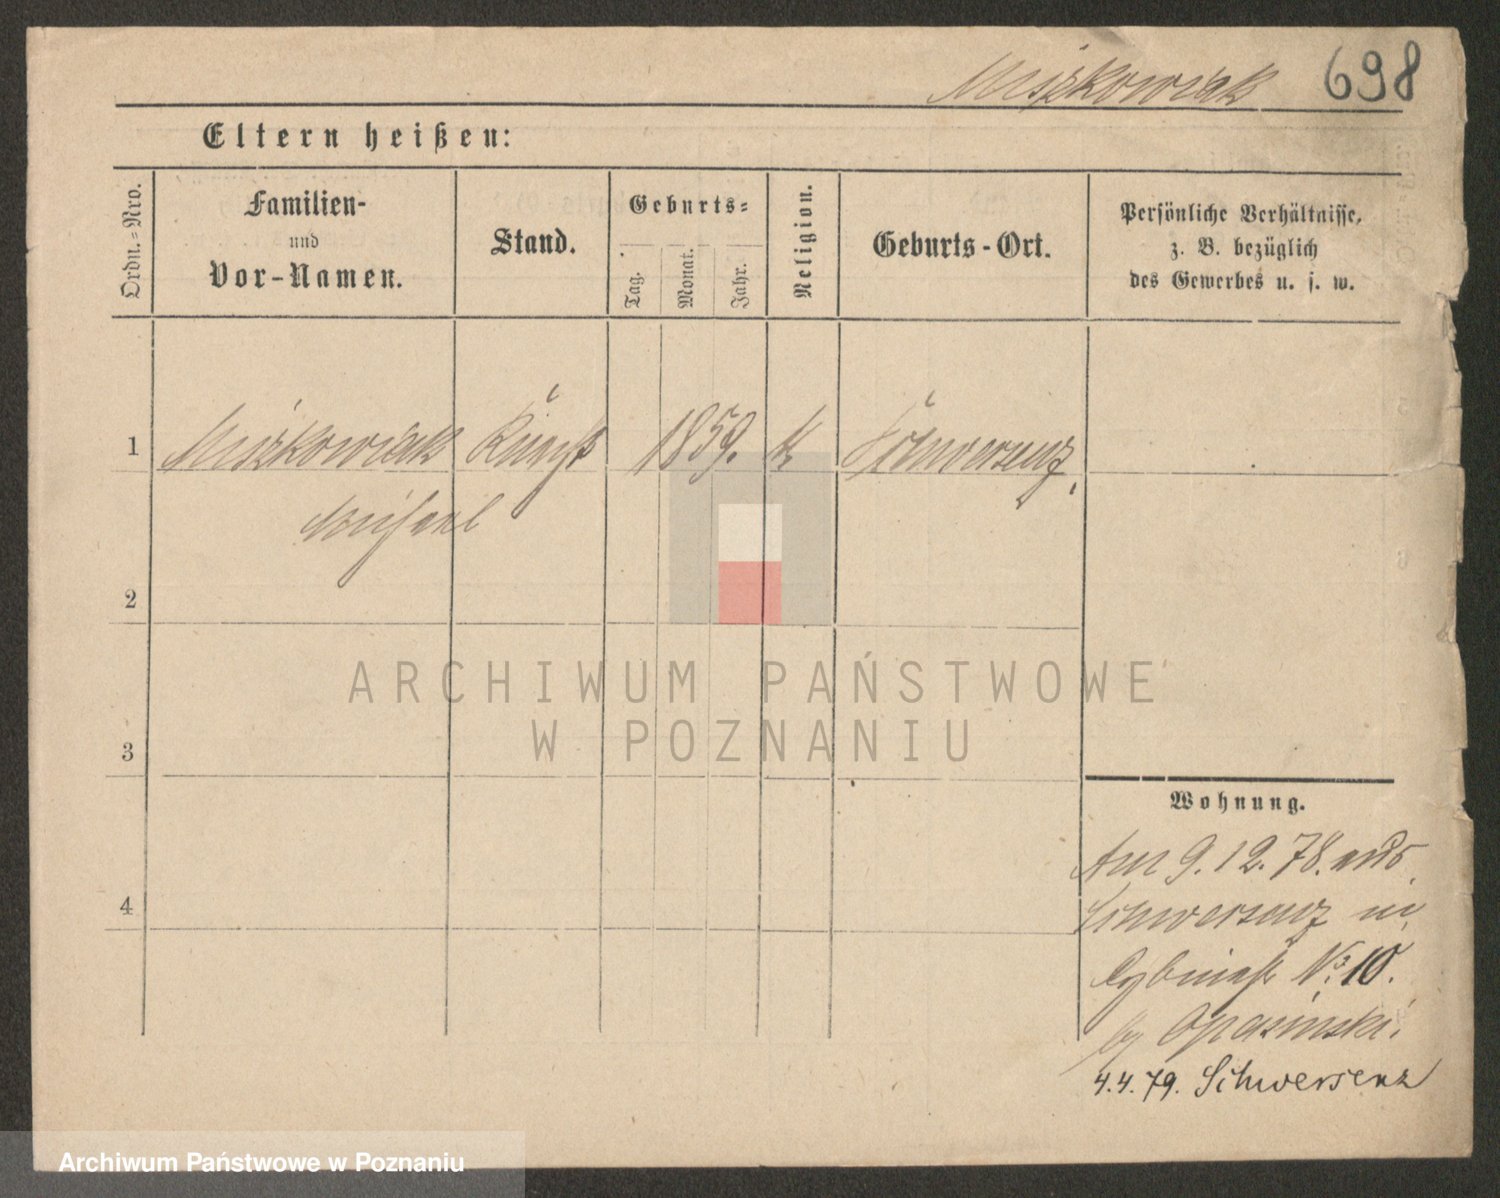 Miszkowiak 698
Eltern heißen:
Ordn.-Nro.
Familien-
und
Vor-Namen.
Stand.
Geburts-
Tag.
Monat.
Jahr.
Religion.
Geburts-Ort.
Persönliche Verhältnisse,
z. B. bezüglich
des Gewerbes u. s. w.
1 Miszkowiak 1859. K Schwersenz,
Michael
2
3
4
ARCHIWUM PAŃSTWOWE
W POZNANIU
Wohnung.
Am 9.12.78. aus
Schwersenz in
Cybinastr No. 10.
by Opasinski.
4.4.79. Schwersenz
Archiwum Państwowe w Poznaniu